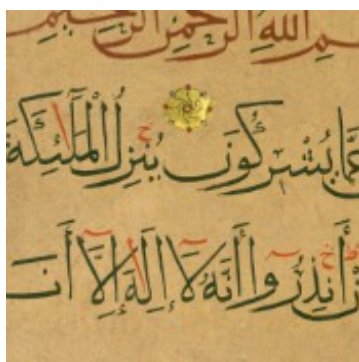 ـم الله الرحمن الرحيم
عما يشركون ينزل الملئكة
أنذروا أنه لا إله إلا أنـ